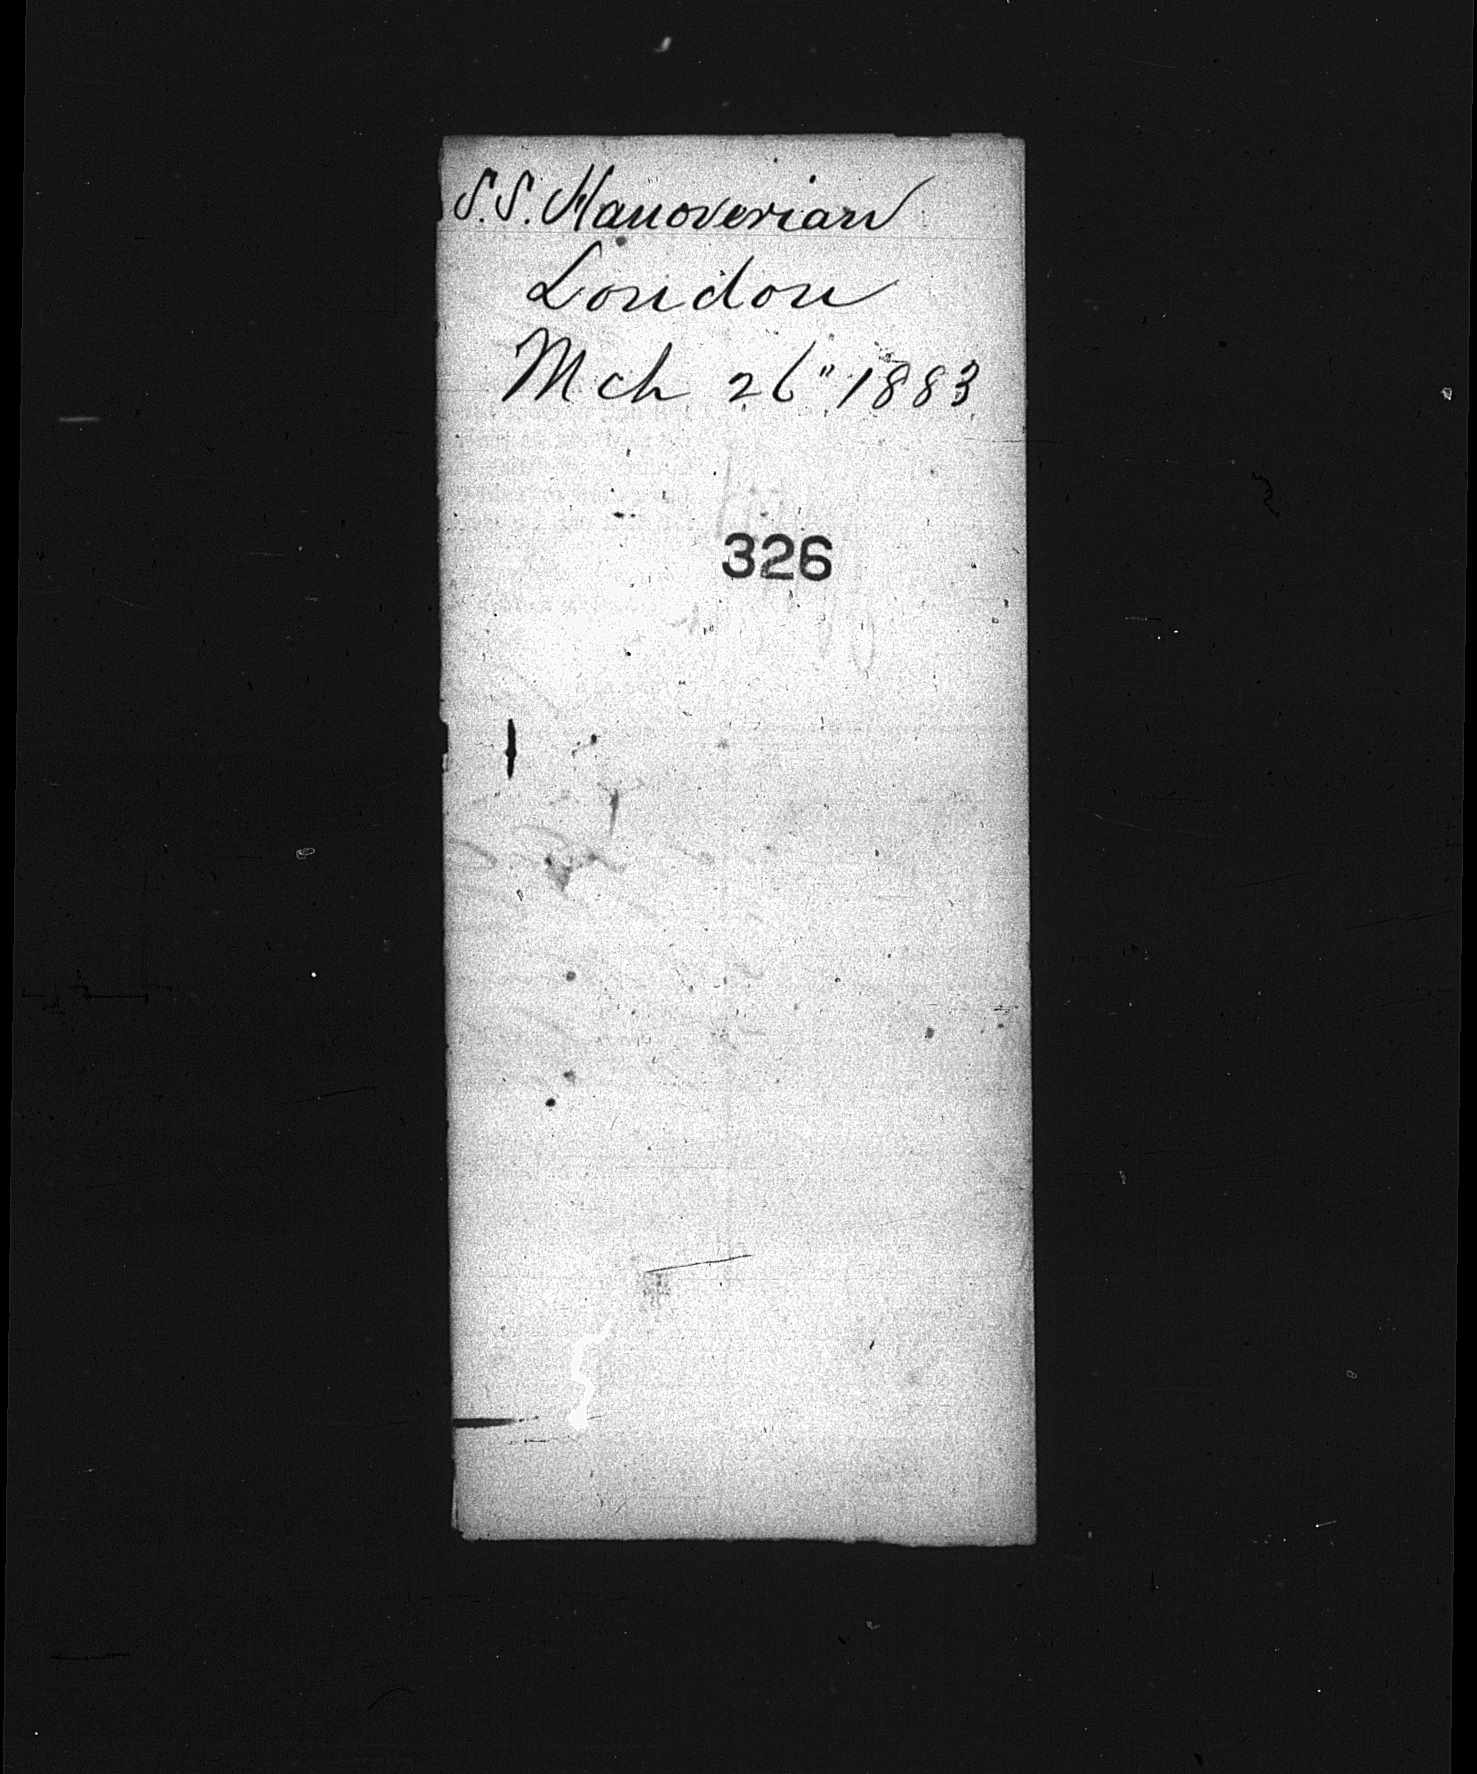 S.S. Hanoverian
London
Mch 26" 1883
326